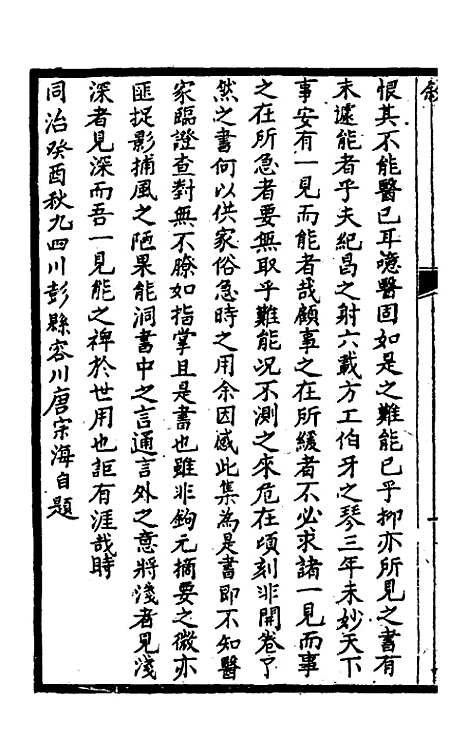 恨其不能醫已耳噫醫固如是之難能已乎抑亦所見之書有
未遽能者乎夫紀昌之射六載方工伯牙之琴三年未妙天下
事安有一見而能者哉顧事之在所緩者不必求諸一見而事
之在所急者要無取乎難能況不測之來危在頃刻非開卷了
然之書何以供家俗急時之用余因感此集為是書即不知醫
家臨證查對無不瞭如指掌且是書也雖非鉤元摘要之微亦
匪捉影捕風之陋果能洞書中之言通言外之意將淺者見淺
深者見深而吾一見能之裨於世用也詎有涯哉時
同治癸酉秋九四川彭縣容川唐宗海自題